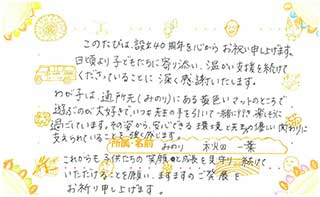 このたびは、設立40周年を心からお祝い申し上げます。
日頃より子どもたちに寄り添い、温かい支援を続けて
くださっていることに深く感謝いたします。
わが子は、通所元(みのり)にある黄色いマットのところで
遊ぶのが大好きで、いつも先生の手を引いて一緒に行き、楽しそうに
過ごしています。その姿から、安心できる環境と先生の優しい関わりに
支えられていることを強く感じます。
所属・名前 みのり 秋田 一葉
これからも子供たちの笑顔と成長を見守り、続けて
いただけることを願い、ますますのご発展を
お祈り申し上げます。